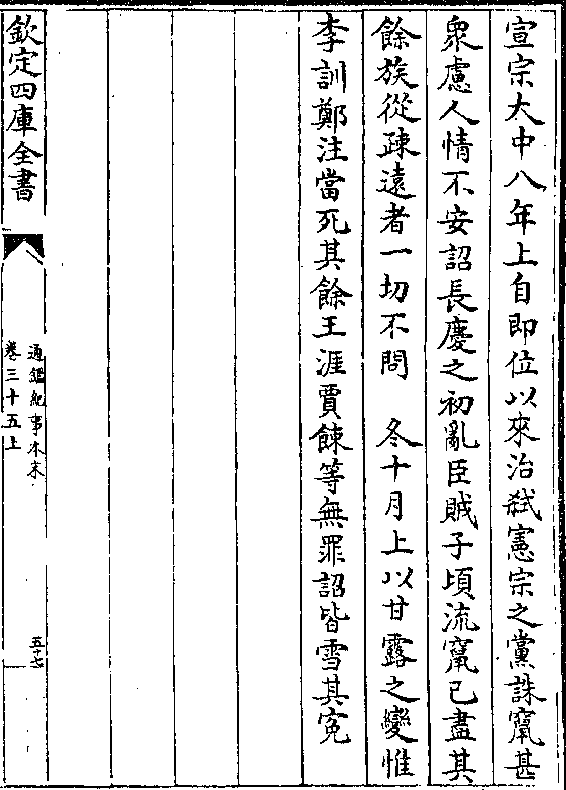 宣宗大中八年上自即位以來治弑憲宗之黨誅竄甚
衆慮人情不安詔長慶之初亂臣賊子頃流竄已盡其
餘族從疎遠者一切不問　冬十月上以甘露之變惟
李訓鄭注當死其餘王涯賈餗等無罪詔皆雪其寃
欽定四庫全書
通鑑紀事本末
卷三十五上
五十七